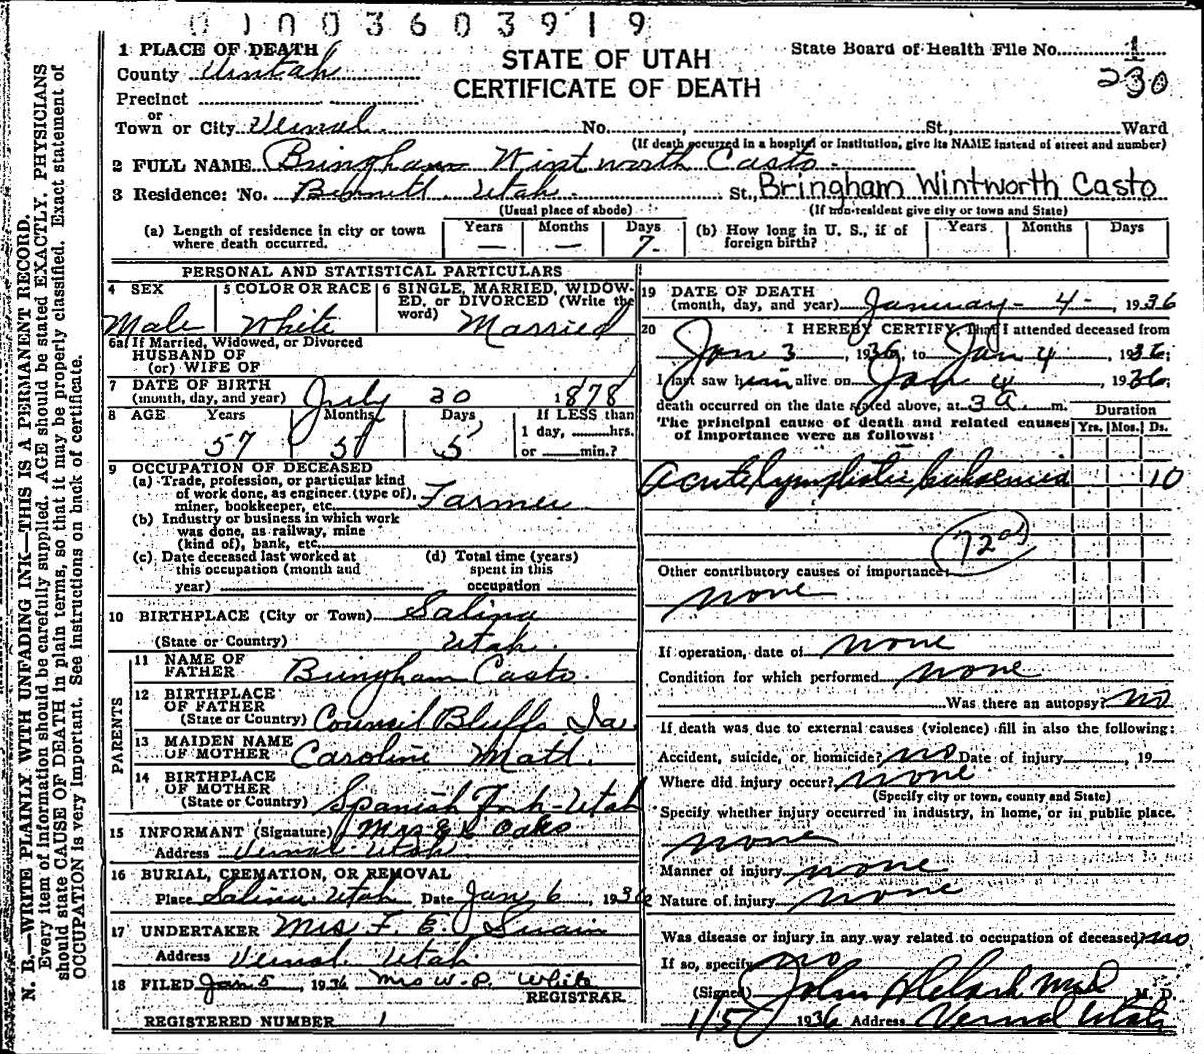 0 1 0 0 3 6 0 3 9 1 9
STATE OF UTAH
CERTIFICATE OF DEATH
State Board of Health File No. 1
230
1 PLACE OF DEATH
County Uintah
Precinct
or
Town or City Vernal No. , St., Ward
(If death occurred in a hospital or institution, give its NAME instead of street and number)
2 FULL NAME Bringham Wintworth Casto
3 Residence: No. Utah. St., Bringham Wintworth Casto
(Usual place of abode) (If non-resident give city or town and State)
(a) Length of residence in city or town where death occurred. Years — Months — Days 7- (b) How long in U. S., if of foreign birth? Years Months Days
PERSONAL AND STATISTICAL PARTICULARS
4 SEX Male
5 COLOR OR RACE White
6 SINGLE, MARRIED, WIDOWED, or DIVORCED (Write the word) Married
6a If Married, Widowed, or Divorced
HUSBAND OF
(or) WIFE OF
7 DATE OF BIRTH
(month, day, and year) July 30 1878
8 AGE Years 57 Months 5 Days 5 If LESS than
1 day, ......hrs.
or ......min.?
9 OCCUPATION OF DECEASED
(a) Trade, profession, or particular kind
of work done, as engineer (type of),
miner, bookkeeper, etc. Farmer
(b) Industry or business in which work
was done, as railway, mine
(kind of), bank, etc.
(c) Date deceased last worked at
this occupation (month and
year)
(d) Total time (years)
spent in this
occupation
10 BIRTHPLACE (City or Town) Salina
(State or Country) Utah.
PARENTS
11 NAME OF
FATHER Bringham Casto.
12 BIRTHPLACE
OF FATHER
(State or Country) Council Bluffs Ia.
13 MAIDEN NAME
OF MOTHER Caroline Matt.
14 BIRTHPLACE
OF MOTHER
(State or Country) Spanish Fork-Utah
15 INFORMANT (Signature) Mrs
Address Vernal Utah.
16 BURIAL, CREMATION, OR REMOVAL
Place Salina Utah Date Jan 6, 1936
17 UNDERTAKER Mrs F. E. Swain
Address Vernal Utah
18 FILED Jan 5, 1936 Mrs W. P. White
REGISTRAR
REGISTERED NUMBER 1
19 DATE OF DEATH
(month, day, and year) January - 4 - , 1936
20 I HEREBY CERTIFY, That I attended deceased from
Jan 3, 1936, to Jan 4, 1936;
I last saw him alive on Jan 4, 1936,
death occurred on the date stated above, at 3 a. m.
The principal cause of death and related causes
of importance were as follows:
Duration
Yrs. Mos. Ds.
Acute lymphatic leukaemia 10
72a
Other contributory causes of importance:
none
If operation, date of none
Condition for which performed none
Was there an autopsy? no
If death was due to external causes (violence) fill in also the following:
Accident, suicide, or homicide? no Date of injury , 19
Where did injury occur? none
(Specify city or town, county and State)
Specify whether injury occurred in industry, in home, or in public place.
none
Manner of injury none
Nature of injury none
Was disease or injury in any way related to occupation of deceased? no
If so, specify no
(Signed) John M. D.
1/5 1936 Address Vernal Utah
N. B.—WRITE PLAINLY WITH UNFADING INK—THIS IS A PERMANENT RECORD.
Every item of information should be carefully supplied. AGE should be stated EXACTLY. PHYSICIANS
should state CAUSE OF DEATH in plain terms, so that it may be properly classified. Exact statement of
OCCUPATION is very important. See instructions on back of certificate.